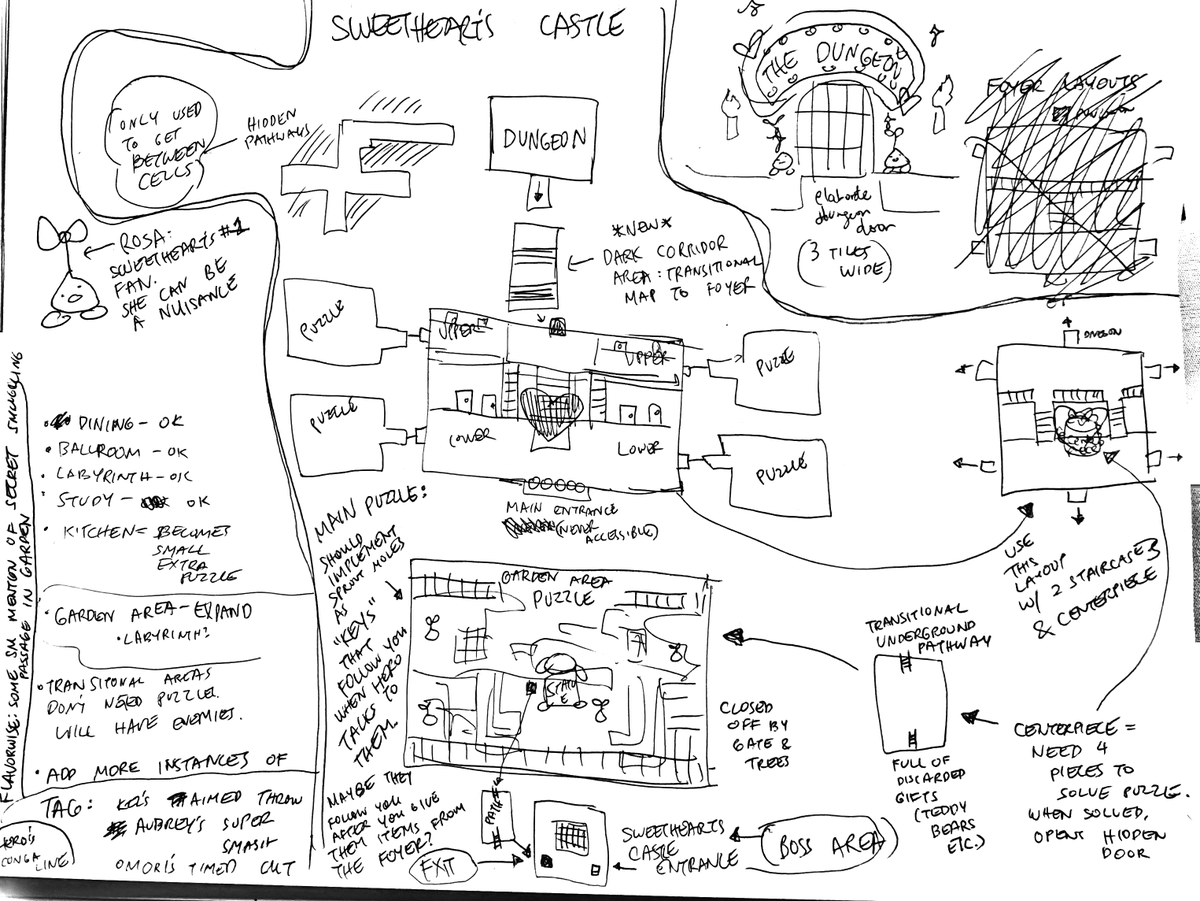 SWEETHEART'S CASTLE
ONLY USED
TO GET
BETWEEN
CELLS
HIDDEN
PATHWAYS
DUNGEON
*NEW*
DARK CORRIDOR
AREA: TRANSITIONAL
MAP TO FOYER
THE DUNGEON
elaborate
dungeon
door
(3 TILES
WIDE)
FOYER LAYOUTS
DUNGEON
ROSA:
SWEETHEART'S #1
FAN.
SHE CAN BE
A NUISANCE
PUZZLE
PUZZLE
UPPER
UPPER
LOWER
LOWER
PUZZLE
PUZZLE
MAIN ENTRANCE
(NEVER
ACCESSIBLE)
DUNGEON
USE
THIS
LAYOUT
W/ 2 STAIRCASES
& CENTERPIECE
FLAVORWISE: SOME SM MENTION OF SECRET SMUGGLING
PASSAGE IN GARDEN
• DINING - OK
• BALLROOM - OK
• LABYRINTH - OK
• STUDY - OK
• KITCHEN = BECOMES
SMALL
EXTRA
PUZZLE
• GARDEN AREA - EXPAND
• LABYRINTH?
• TRANSITIONAL AREAS
DON'T NEED PUZZLE.
WILL HAVE ENEMIES.
• ADD MORE INSTANCES OF
TAG: KEL'S AIMED THROW
AUBREY'S SUPER
SMASH
OMORI'S TIMED CUT
HERO'S
CONGA
LINE
MAIN PUZZLE:
SHOULD
IMPLEMENT
SPROUT MOLES
AS
"KEYS"
THAT
FOLLOW YOU
WHEN HERO
TALKS TO
THEM.
MAYBE THEY
FOLLOW YOU
AFTER YOU GIVE
THEM ITEMS FROM
THE FOYER?
GARDEN AREA
PUZZLE
STATUE
CLOSED
OFF BY
GATE &
TREES
TRANSITIONAL
UNDERGROUND
PATHWAY
FULL OF
DISCARDED
GIFTS
(TEDDY
BEARS
ETC.)
CENTERPIECE =
NEED 4
PIECES TO
SOLVE PUZZLE.
WHEN SOLVED,
OPENT HIDDEN
DOOR
PATH
EXIT
SWEETHEARTS
CASTLE
ENTRANCE
BOSS AREA